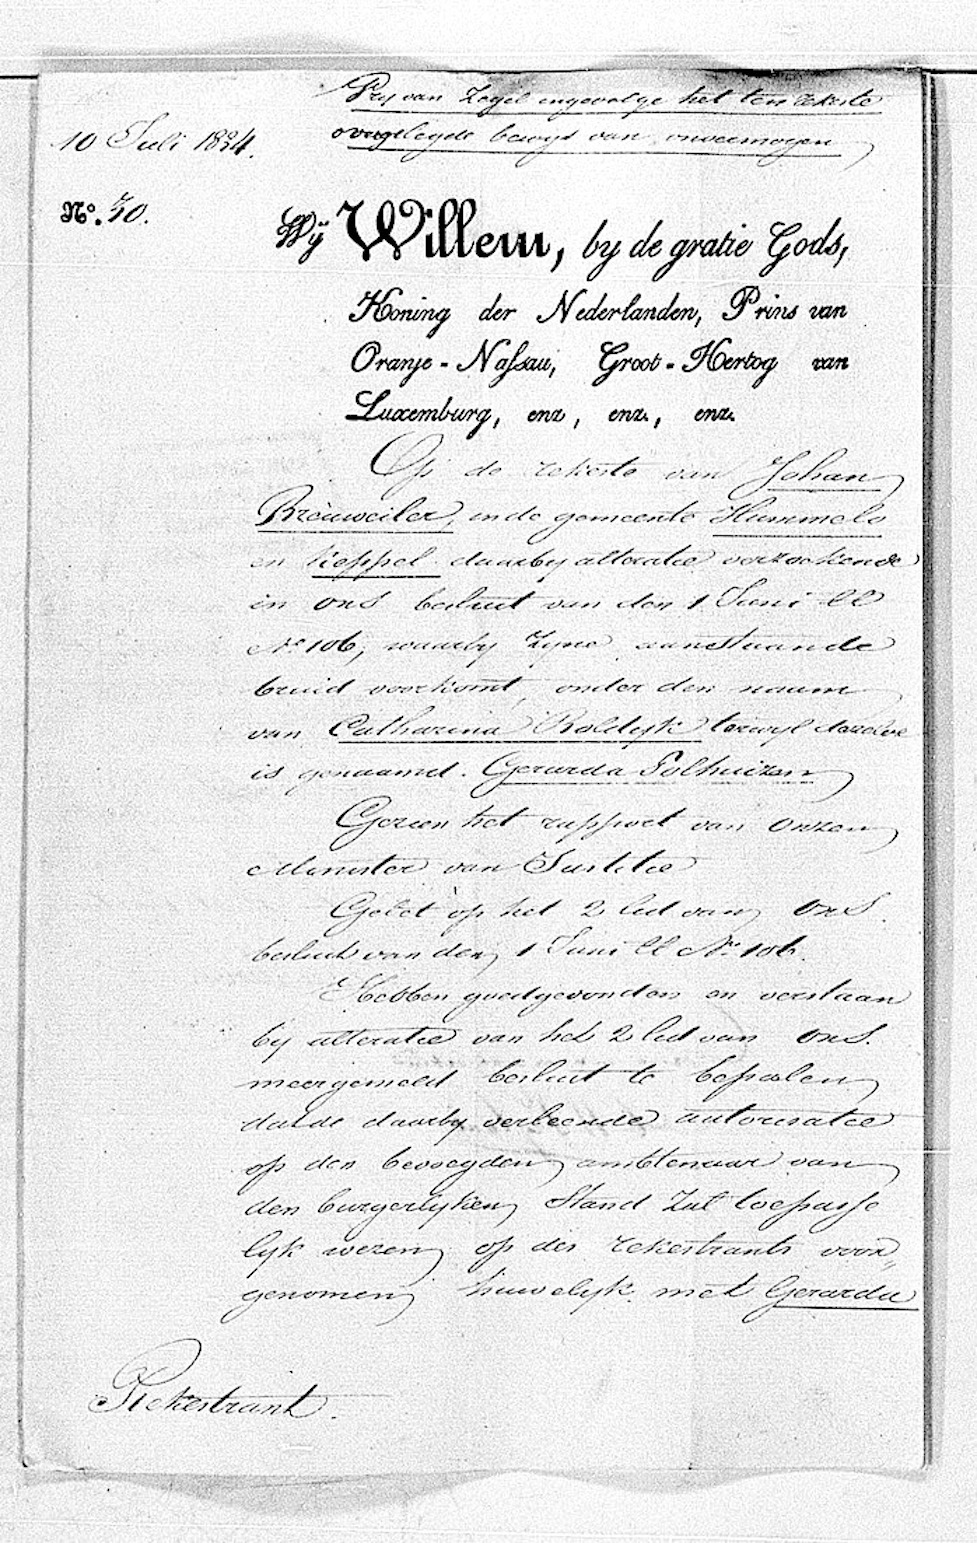 Vry van Zegel ingevolge het ten rekeste
overgelegde bewys van onvermogen
10 Juli 1834.
No. 30.
Wÿ Willem, by de gratie Gods,
Koning der Nederlanden, Prins van
Oranje-Nassau, Groot-Hertog van
Luxemburg, enz, enz., enz.
Op de rekeste van Johan
Breuweiler, in de gemeente Hummelo
en Keppel daarby alteratie verzoekende
in ons besluit van den 1 Juni ll
No 106, waarby zyne aanstaande
bruid voorkomt, onder den naam
van Catharina Roldyk terwyl dezelve
is genaamd. Gerarda Polhuizen
Gezien het rapport van onzen
Minister van Justitie
Gelet op het 2 lid van ons
besluit van den 1 Juni ll No 106.
Hebben goedgevonden en verstaan
by alteratie van het 2 lid van ons.
meergemeld besluit te bepalen
dat de daarby verleende autorisatie
op den bevoegden ambtenaar van
den burgerlyken Stand zal toepasse
lyk wezen op des rekestrants voor„
genomen huwelyk met Gerarda
Rekestrant.